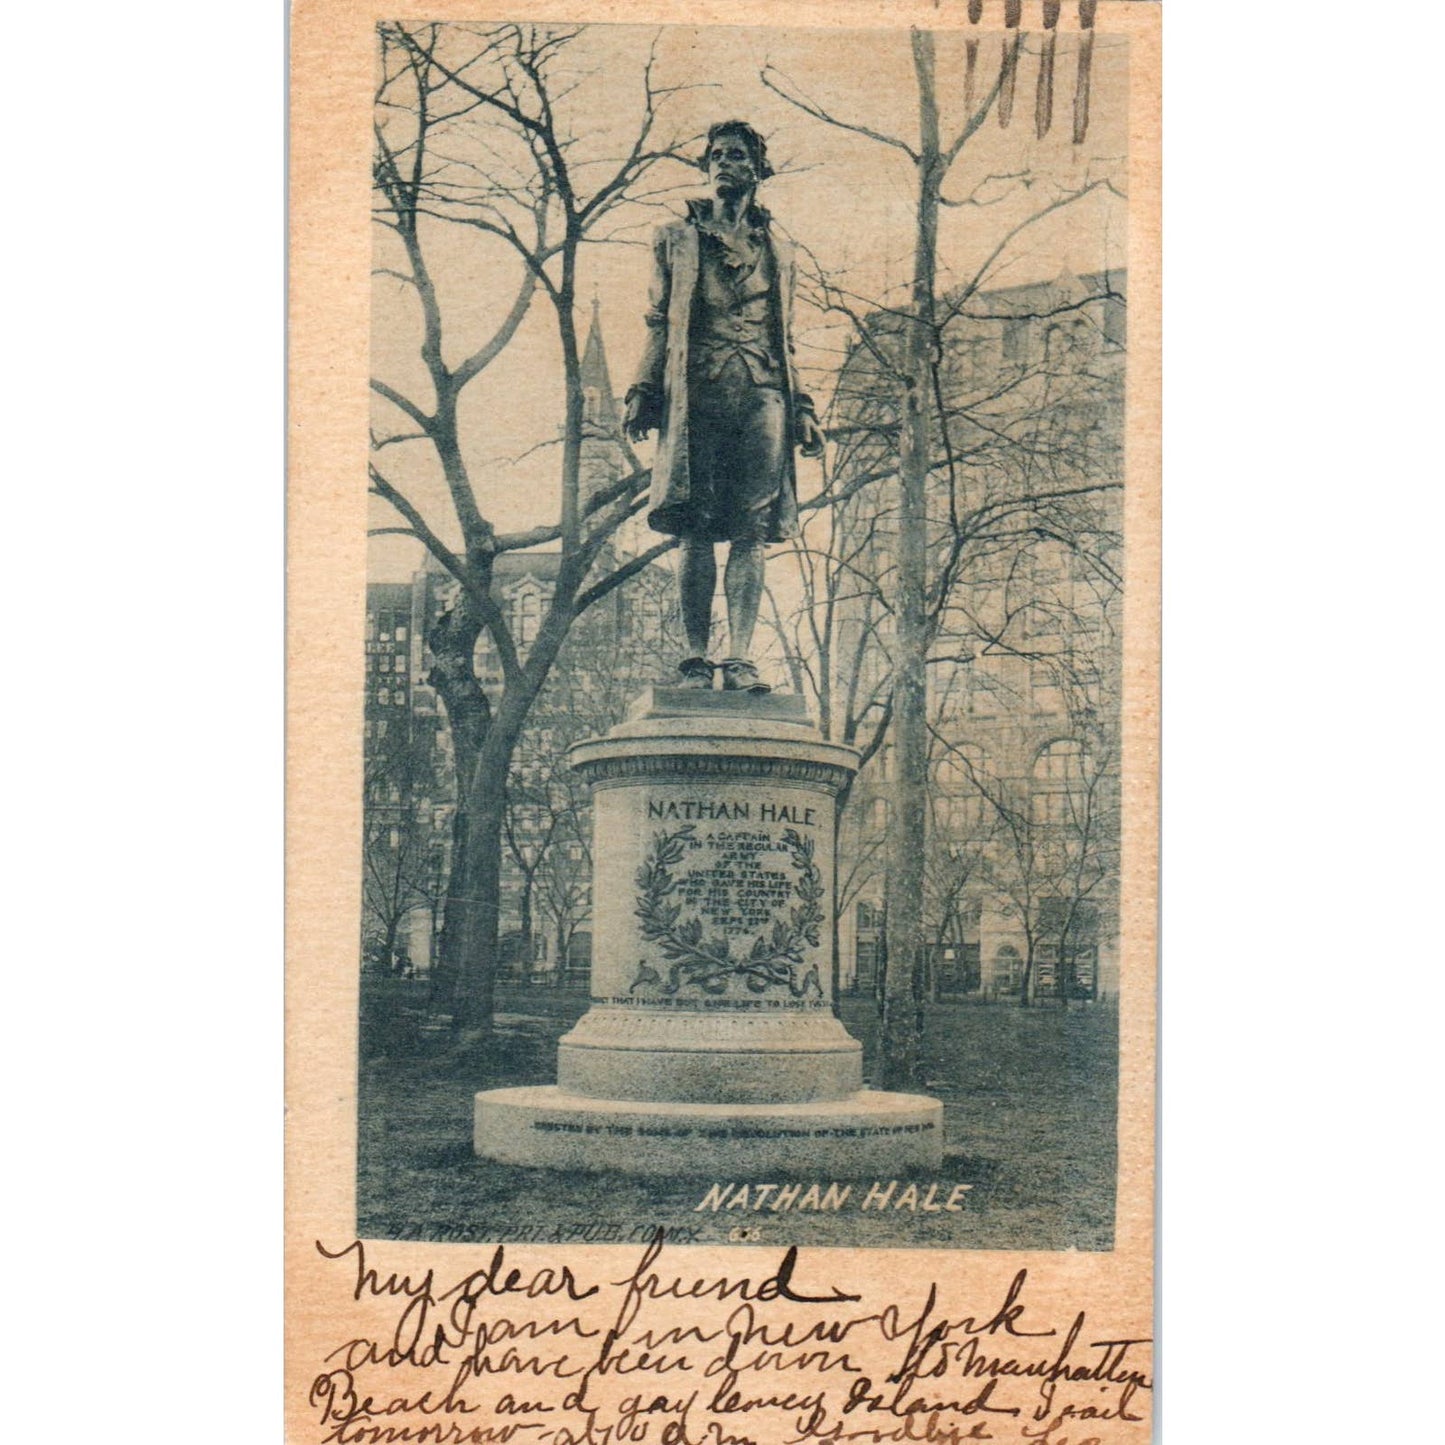 NATHAN HALE
A CAPTAIN
IN THE REGULAR
ARMY
OF THE
UNITED STATES
WHO GAVE HIS LIFE
FOR HIS COUNTRY
IN THE CITY OF
NEW YORK
SEPT 22ND
1776.
THAT I HAVE BUT ONE LIFE TO LOSE
ERECTED BY THE SONS OF THE REVOLUTION OF THE STATE OF NEW
NATHAN HALE
H.A. ROST. PRT. & PUB. CO. N.Y. 656
My dear friend
I am in New York
and have been down to Manhatten
Beach and gay Coney Island I sail
tomorrow at 10 a m Goodbye